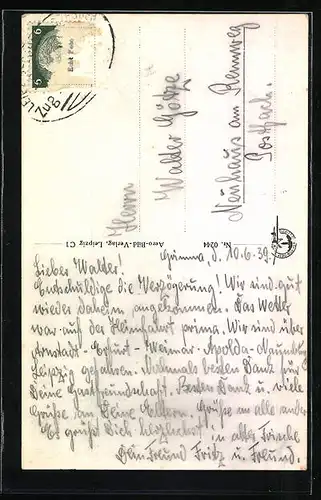 Herrn
Walter Götze
Neuhaus am Rennweg
Postfach.
Aero-Bild-Verlag, Leipzig C1
Nr. 0244
Grimma, d. 10.6.39.
Lieber Walter!
Entschuldige die Verzögerung! Wir sind gut
wieder daheim angekommen. Das Wetter
war auf der Heimfahrt prima. Wir sind über
Arnstadt - Erfurt - Weimar - Apolda - Naumburg
Leipzig gefahren. Nochmals besten Dank für
Deine Gastfreundschaft. Besten Dank u. viele
Grüße an Deine Eltern. Grüße an alle andern
Es grüßt Dich herzlichst
in alter Frische
Dein Freund Fritz u. Freund.
6
6